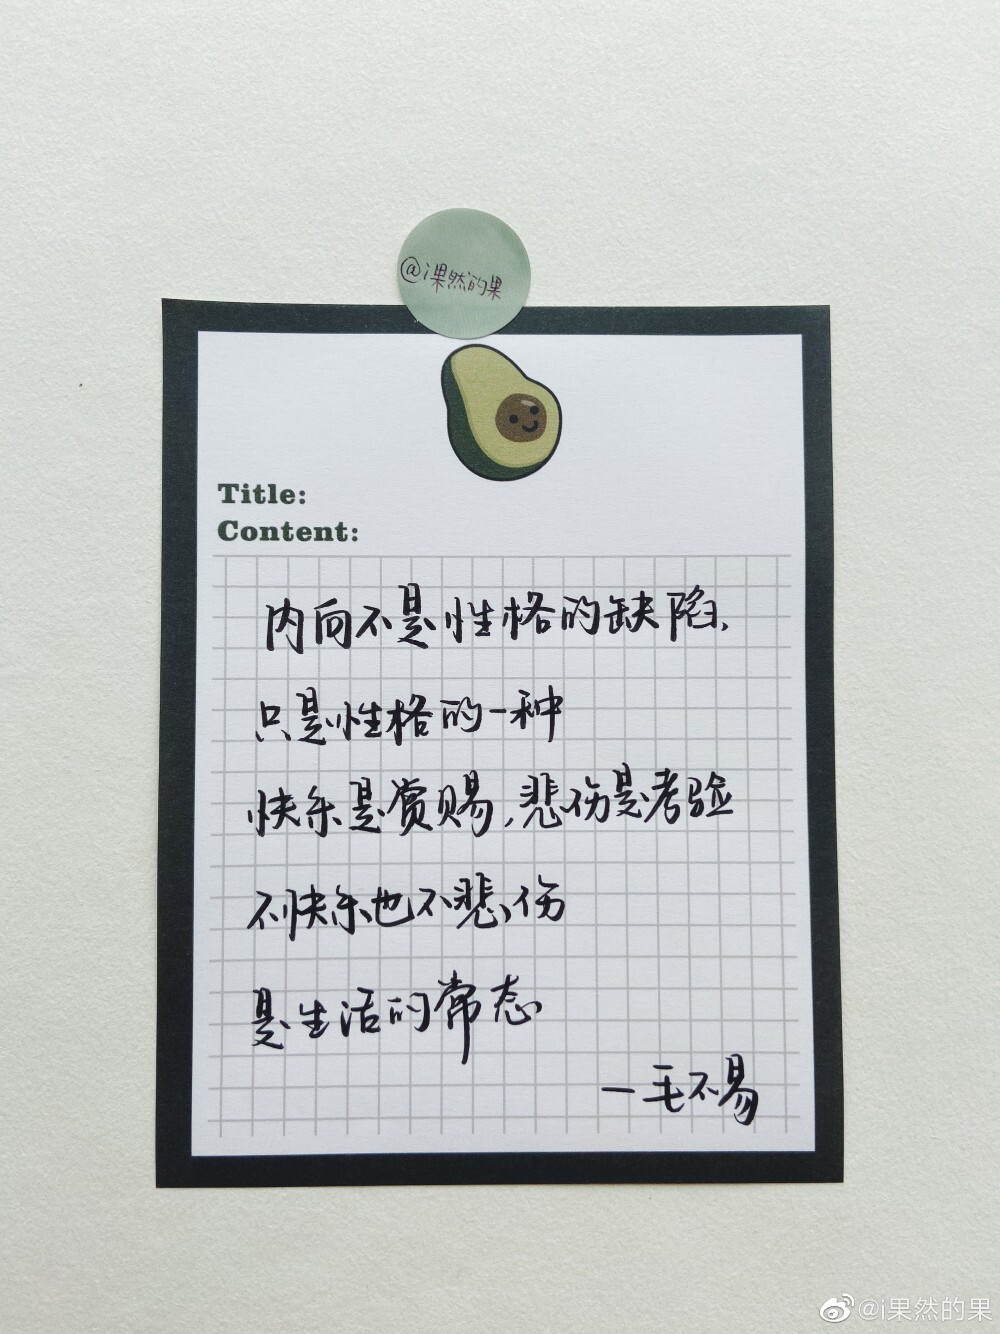 @i果然的果
Title:
Content:
内向不是性格的缺陷,
只是性格的一种
快乐是赏赐,悲伤是考验
不快乐也不悲伤
是生活的常态
—毛不易
@i果然的果